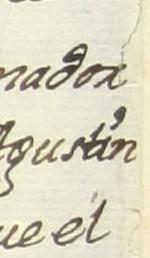 nador
Agustín
ue él